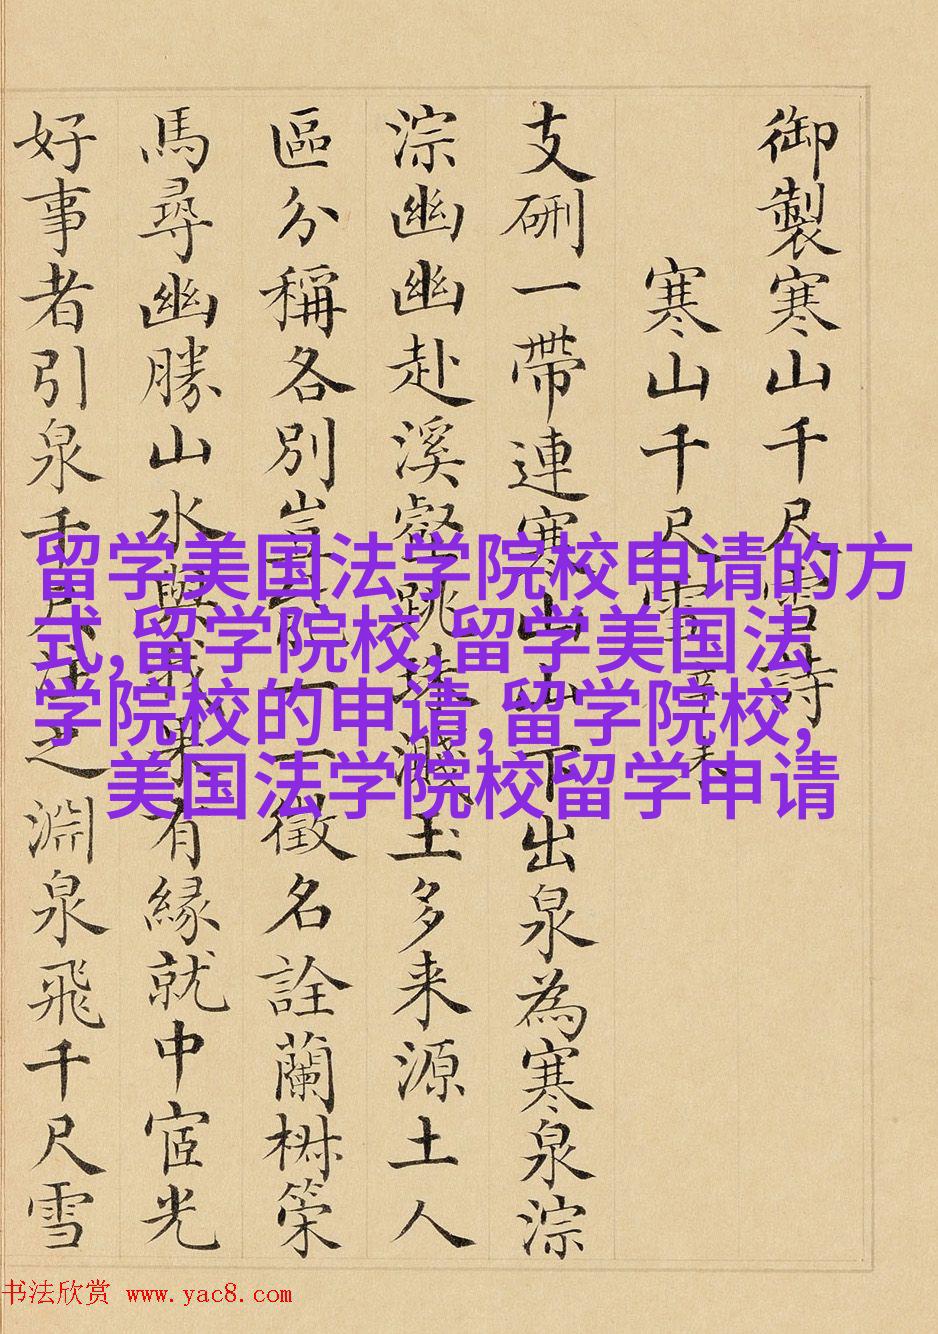 御製寒山千尺雪詩
寒山千尺雪辛未
支硎一帶連寒山山下出泉為寒泉淙
淙幽幽赴溪壑跳珠濺玉多来源土人
區分稱各別豈能一一徵名詮蘭椒策
馬尋幽勝山水與我果有緣就中宧光
好事者引泉千尺之淵泉飛千尺雪
留学美国法学院校申请的方
式,留学院校,留学美国法
学院校的申请,留学院校,
美国法学院校留学申请
书法欣赏 www.yac8.com